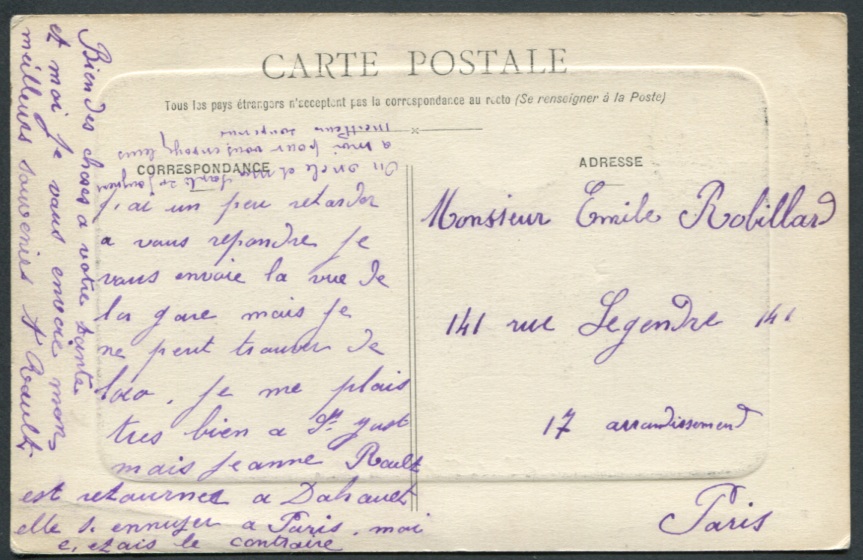 CARTE POSTALE
Tous les pays étrangers n'acceptent pas la correspondance au recto (Se renseigner à la Poste)
CORRESPONDANCE
ADRESSE
j'ai un peu retarder
a vous repondre je
vous envoie la vue de
la gare mais je
ne peut trouver de
loco. je me plais
tres bien a St just
mais jeanne Rault
est retournee a Dahouet
elle s. ennuyer a Paris. moi
c. etais le contraire
Bien des choses a votre tante
et moi je vous envoie mon
meilleurs souvenirs A Rault
On oncle et ma tante
a moi pour vous envoye leurs
meilleur souvenir
Monsieur Emile Robillard
141 rue Legendre 141
17 arrondissement
Paris